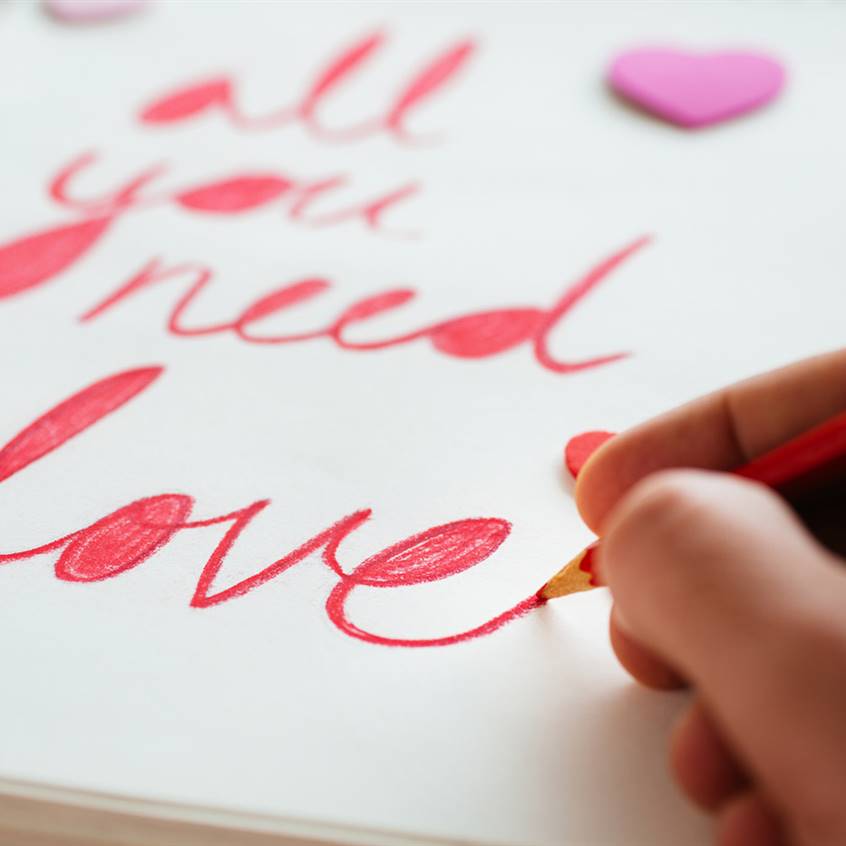 all
you
need
love